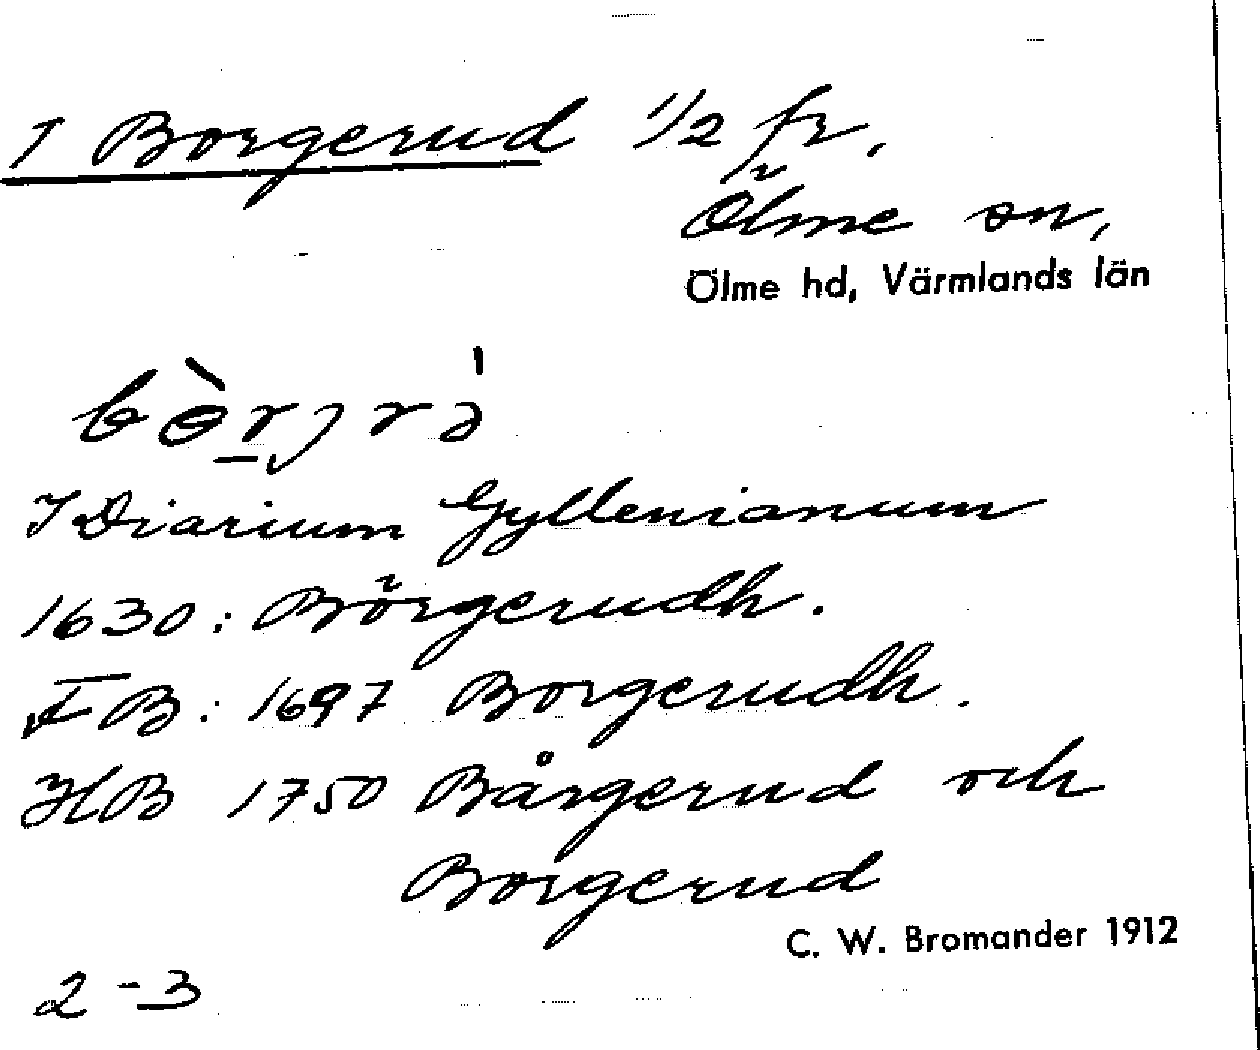 I Borgerud 1/2 fr.
Ölme sn,
Ölme hd, Värmlands län
I Diarium Gyllenianum
1630: Börgerudh.
FB: 1697 Borgerudh.
HB 1750 Bårgerud och
Borgerud
C. W. Bromander 1912
2-3